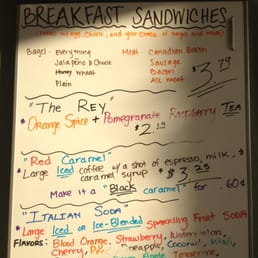 BREAKFAST SANDWICHES
(comes w/ egg, cheese, and your choice of bagel and meat)
Bagel: Everything Meat: Canadian Bacon
Jalapeño & Cheese Sausage
Honey Wheat Bacon
Plain All meat
$3.79
"The Rey"
* Orange Spice + Pomegranate Raspberry TEA
$2.19
"Red Caramel"
* Large Iced coffee w/ a shot of espresso, milk, +
caramel syrup * $3.25
Make it a "Black caramel" for .60¢
"Italian Soda"
* Large Iced or Ice-Blended Sparkling Fruit SODA
FLAVORS: Blood Orange, Strawberry, Watermelon,
Cherry, Coconut, Kiwi,